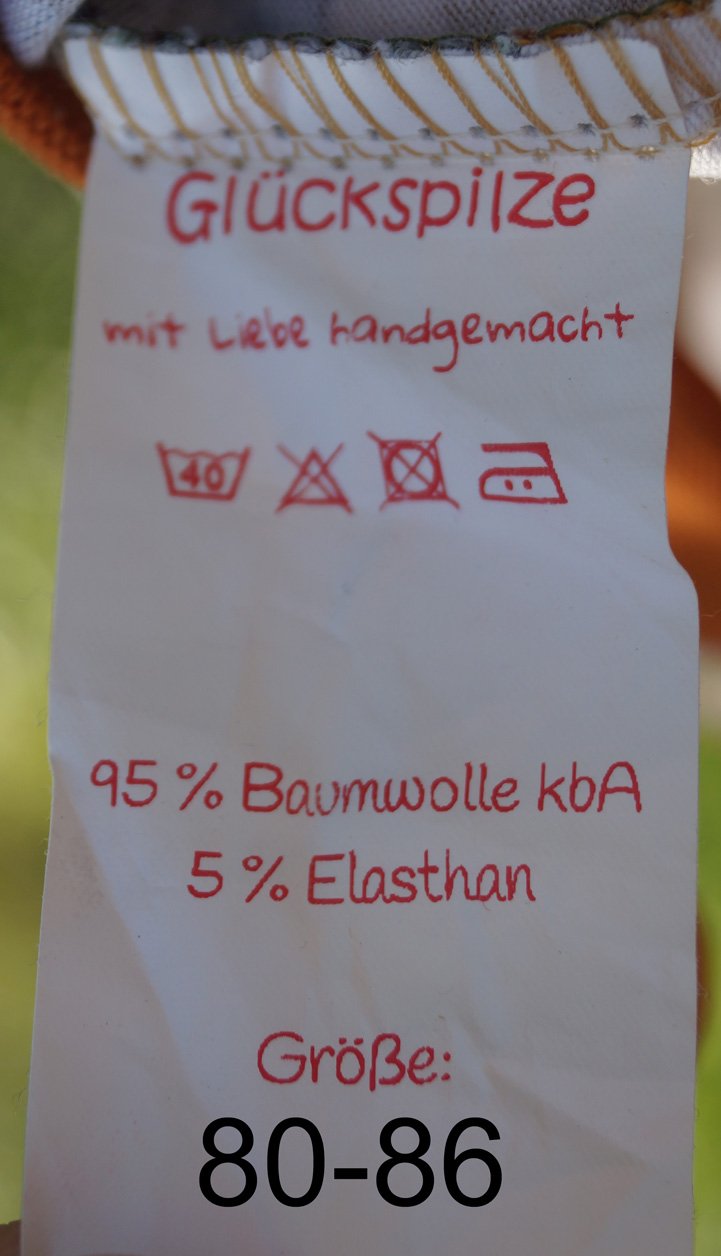 Glückspilze
mit Liebe handgemacht
40
95 % Baumwolle kbA
5 % Elasthan
Größe:
80-86